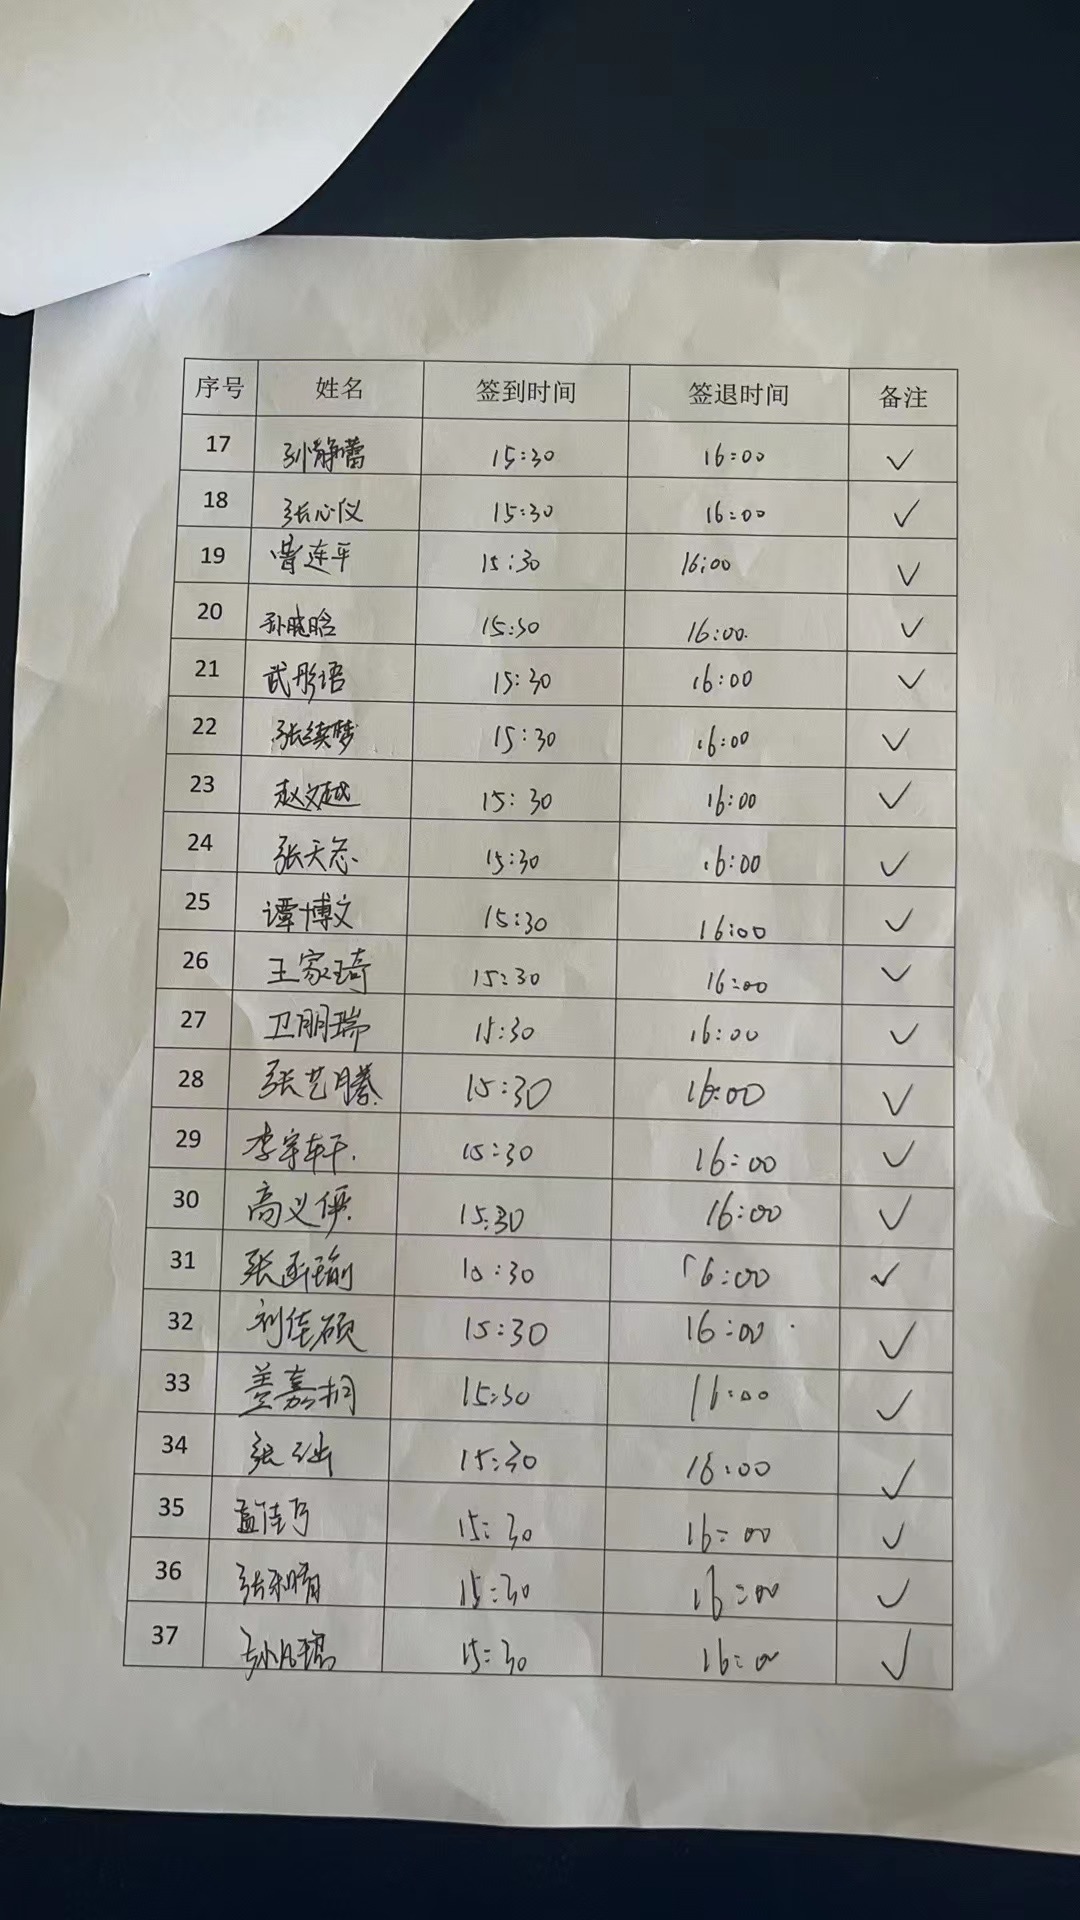 序号 姓名 签到时间 签退时间 备注
17 孙静蕾 15:30 16:00 ✓
18 张心仪 15:30 16:00 ✓
19 曹连平 15:30 16:00 ✓
20 孙晓晗 15:30 16:00. ✓
21 武彤语 15:30 16:00 ✓
22 张续梦 15:30 16:00 ✓
23 赵文越 15:30 16:00 ✓
24 张天志. 15:30 16:00 ✓
25 谭博文 15:30 16:00 ✓
26 王家琦 15:30 16:00 ✓
27 卫朋瑞 15:30 16:00 ✓
28 张艺腾. 15:30 16:00 ✓
29 李宇轩. 15:30 16:00 ✓
30 高义 15:30 16:00 ✓
31 张 瑜 15:30 16:00 ✓
32 刘佳硕 15:30 16:00 ✓
33 盖嘉桐 15:30 16:00 ✓
34 张 15:30 16:00 ✓
35 孟佳 15:30 16:00 ✓
36 张 晴 15:30 16:00 ✓
37 孙 15:30 16:00 ✓